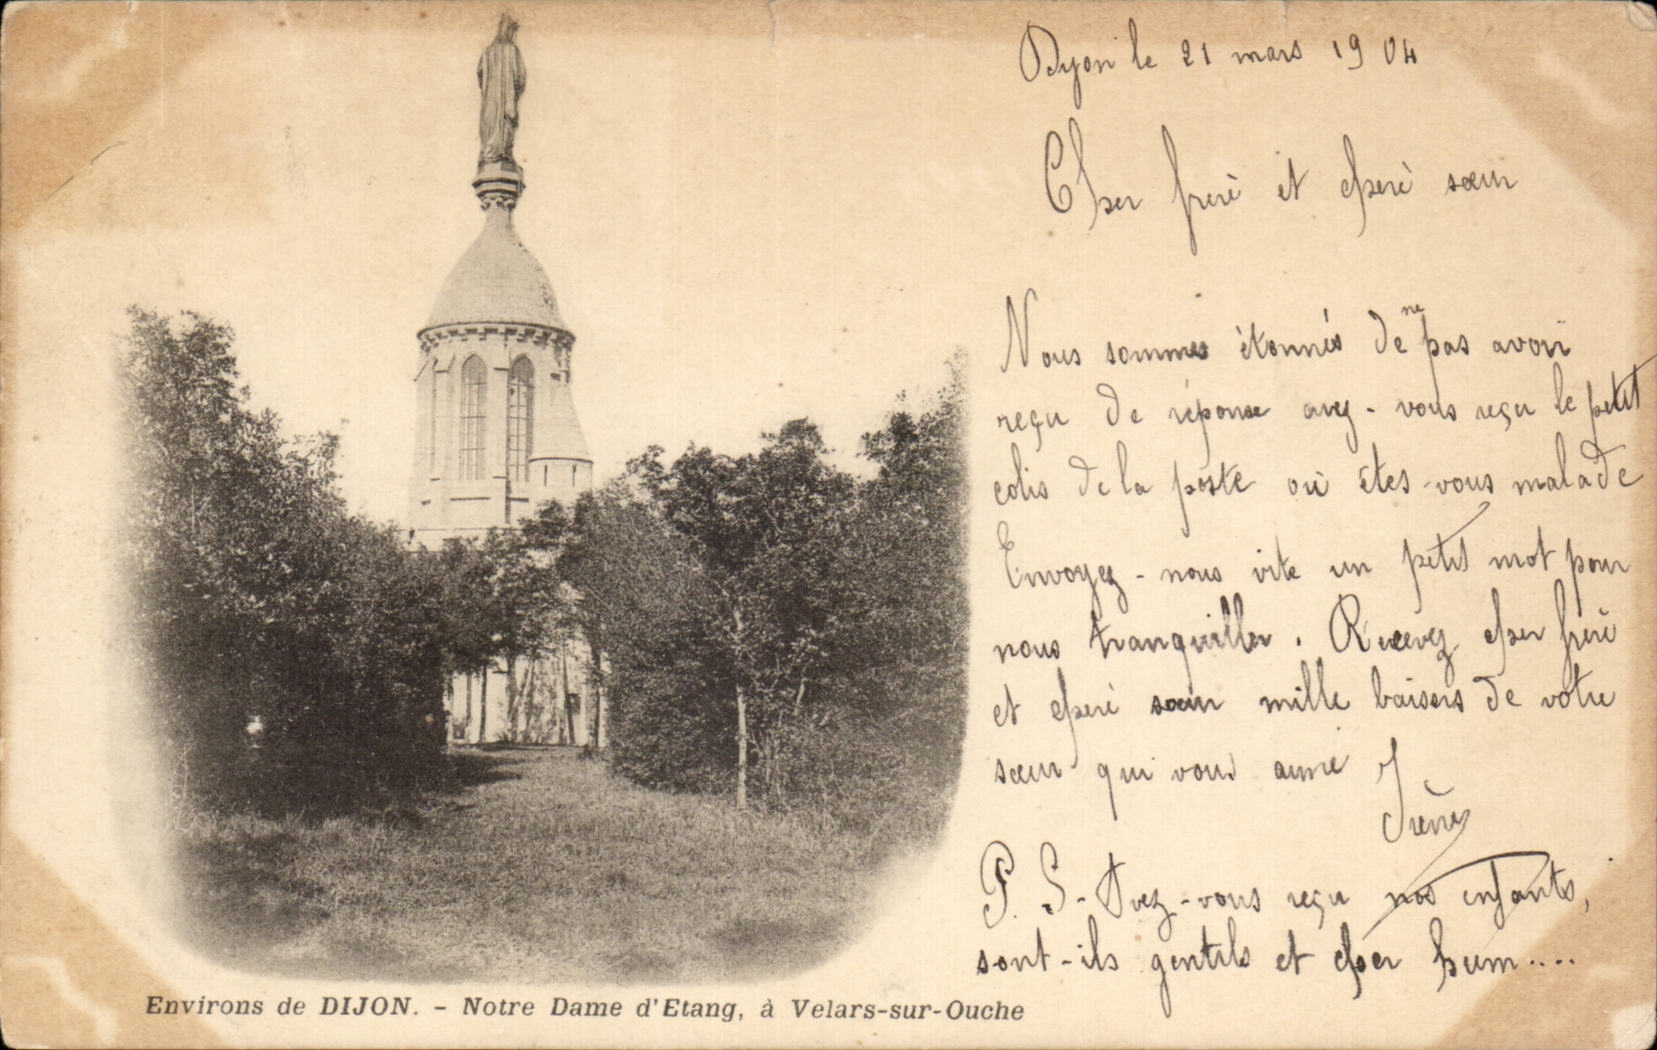 Dijon le 21 mars 1904
Cher frère et chère sœur
Nous sommes étonnés de ne pas avoir
reçu de réponse avez-vous reçu le petit
colis de la poste où êtes-vous malade
Envoyez-nous vite un petit mot pour
nous tranquiller. Recevez cher frère
et chère sœur mille baisers de votre
sœur qui vous aime
Irène
P. S- Avez-vous reçu nos enfants,
sont-ils gentils et cher hum....
Environs de DIJON. - Notre Dame d'Etang, à Velars-sur-Ouche